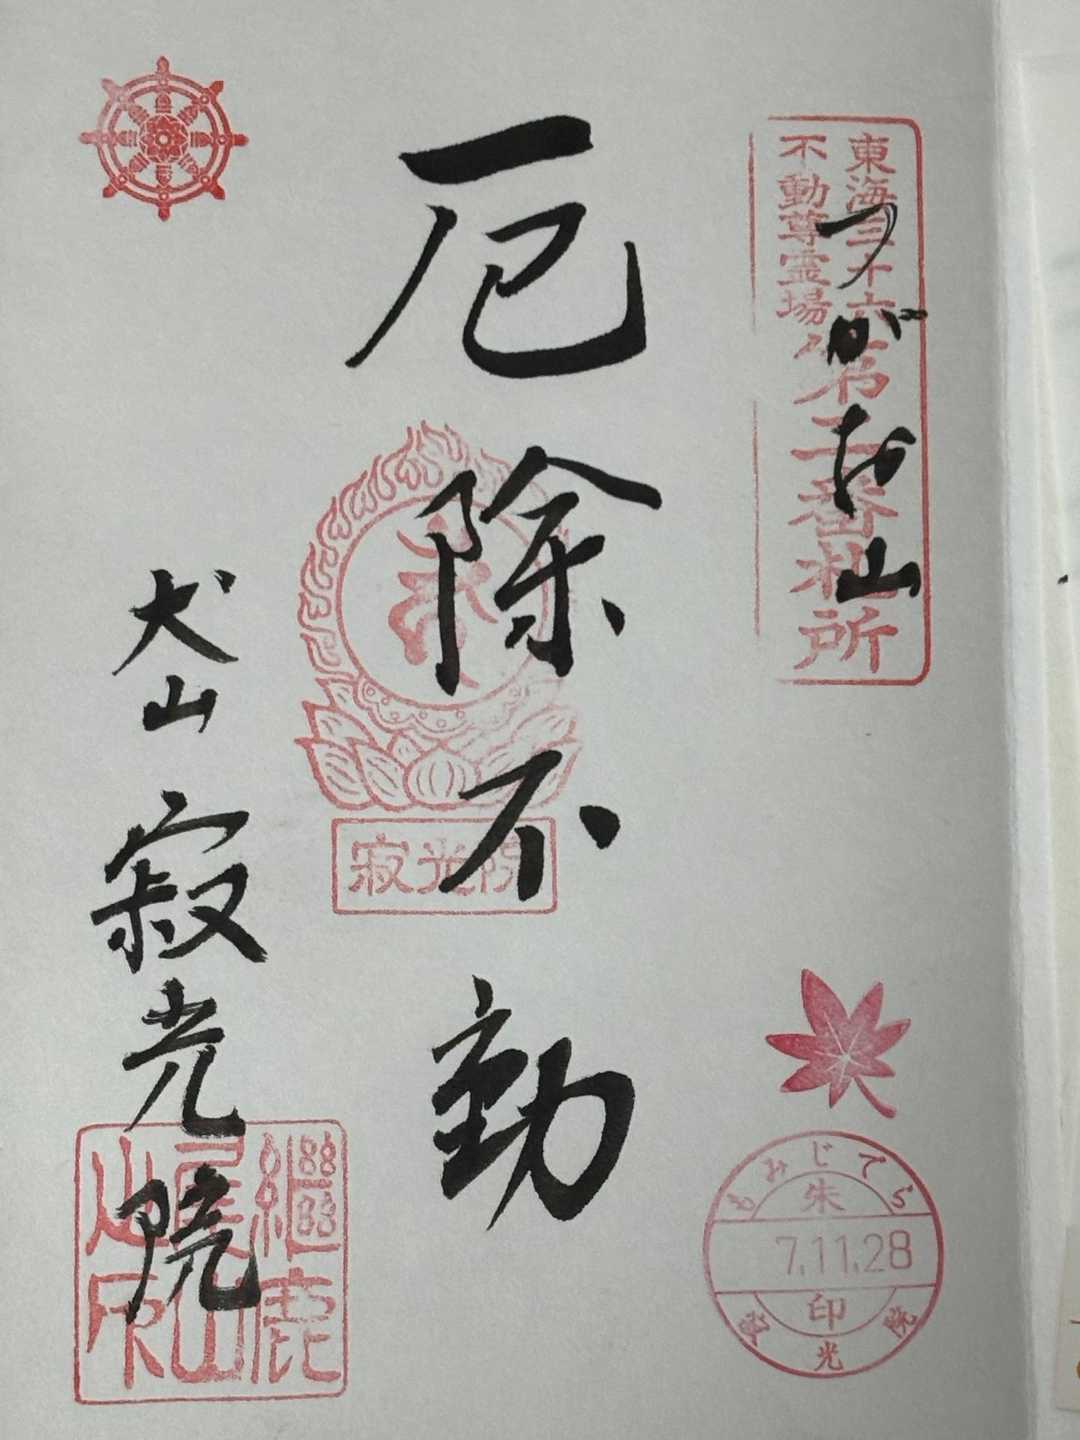 東海三十六
不動尊霊場
第二番札所
つがお山
厄除不動
寂光院
犬山
寂光院
継鹿
尾山
之印
もみじでら
朱
7.11.28
印
寂光院